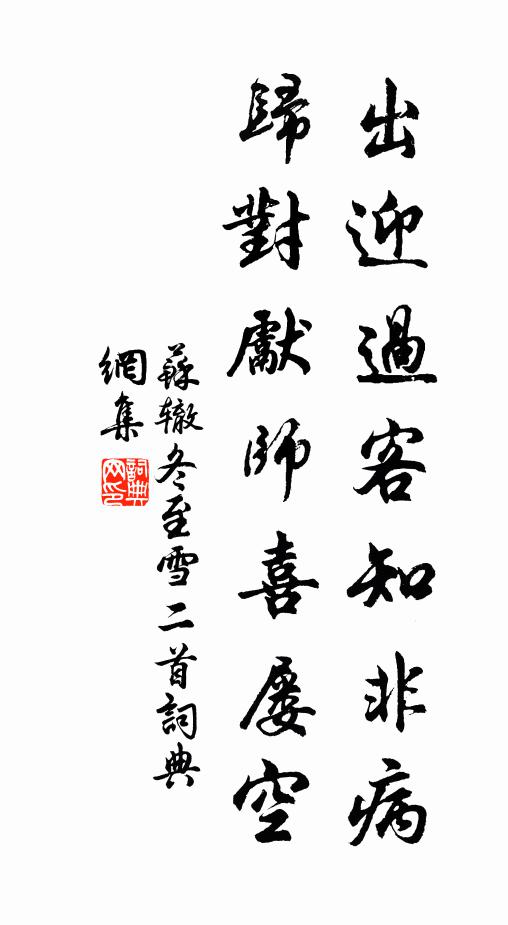 出迎過客知非病
歸對獻師喜屢空
蘇辙冬至雪二首詞典
網集
詞典
网印